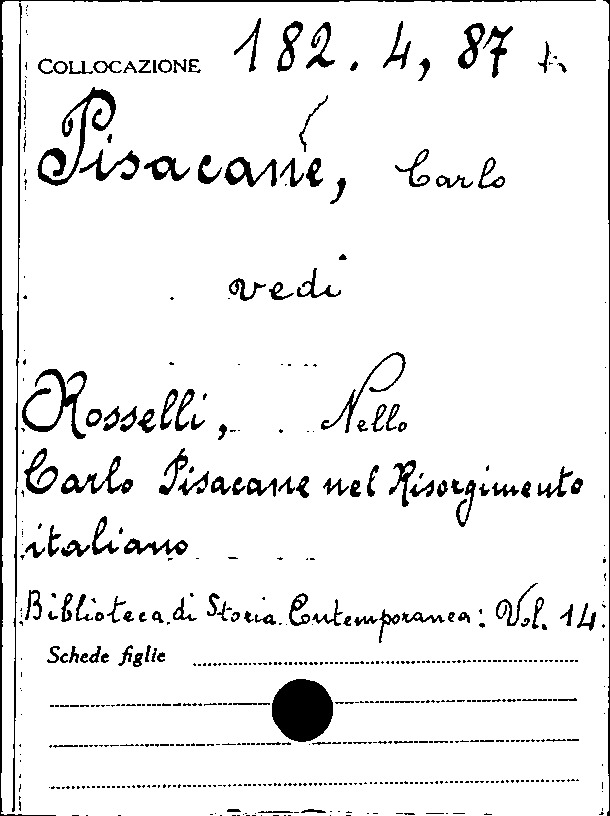 COLLOCAZIONE 182. 4, 87
Pisacane, Carlo
vedi
Rosselli, Nello
Carlo Pisacane nel Risorgimento
italiano
Biblioteca di Storia Contemporanea: Vol. 14.
Schede figlie